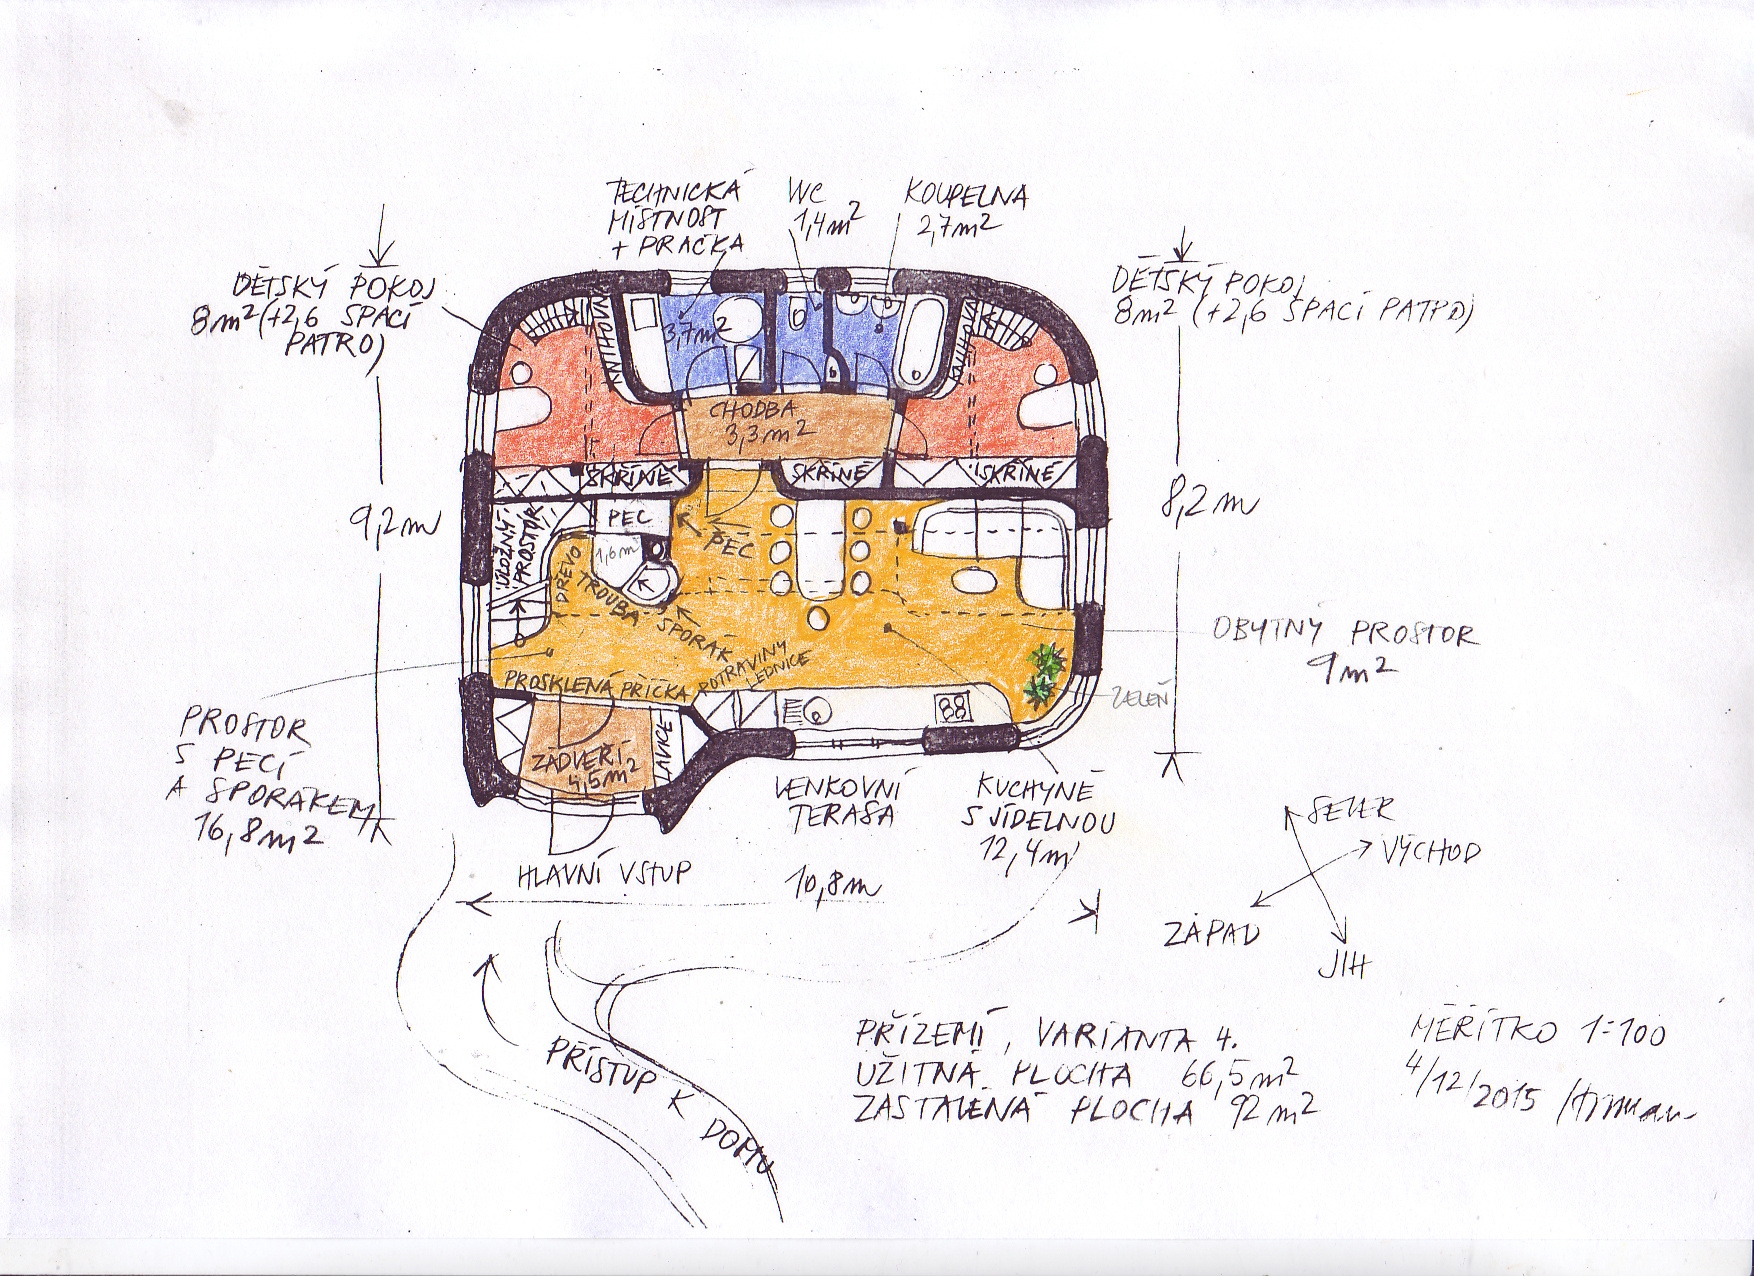 TECHNICKÁ
MÍSTNOST
+ PRAČKA
WC
1,4m²
KOUPELNA
2,7m²
DĚTSKÝ POKOJ
8m² (+2,6 SPACÍ
PATRO)
DĚTSKÝ POKOJ
8m² (+2,6 SPACÍ PATRO)
KNIHOVNA
3,7m²
KNIHOVNA
CHODBA
3,3m²
SKŘÍNĚ
SKŘÍNĚ
SKŘÍNĚ
9,2m
8,2m
ÚLOŽNÝ
PROSTOR
PEC
PEC
1,6m²
DŘEVO
TROUBA
SPORÁK
POTRAVINY
LEDNICE
PROSKLENÁ PŘÍČKA
OBYTNÝ PROSTOR
9m²
ZELEŇ
PROSTOR
S PECÍ
A SPORÁKEM
16,8m²
ZÁDVEŘÍ
4,5m²
LAVICE
VENKOVNÍ
TERASA
KUCHYNĚ
S JÍDELNOU
12,4m²
HLAVNÍ VSTUP
10,8m
SEVER
VÝCHOD
ZÁPAD
JIH
PŘÍSTUP K DOMU
PŘÍZEMÍ, VARIANTA 4.
UŽITNÁ PLOCHA 66,5m²
ZASTAVĚNÁ PLOCHA 92m²
MĚŘÍTKO 1:100
4/12/2015